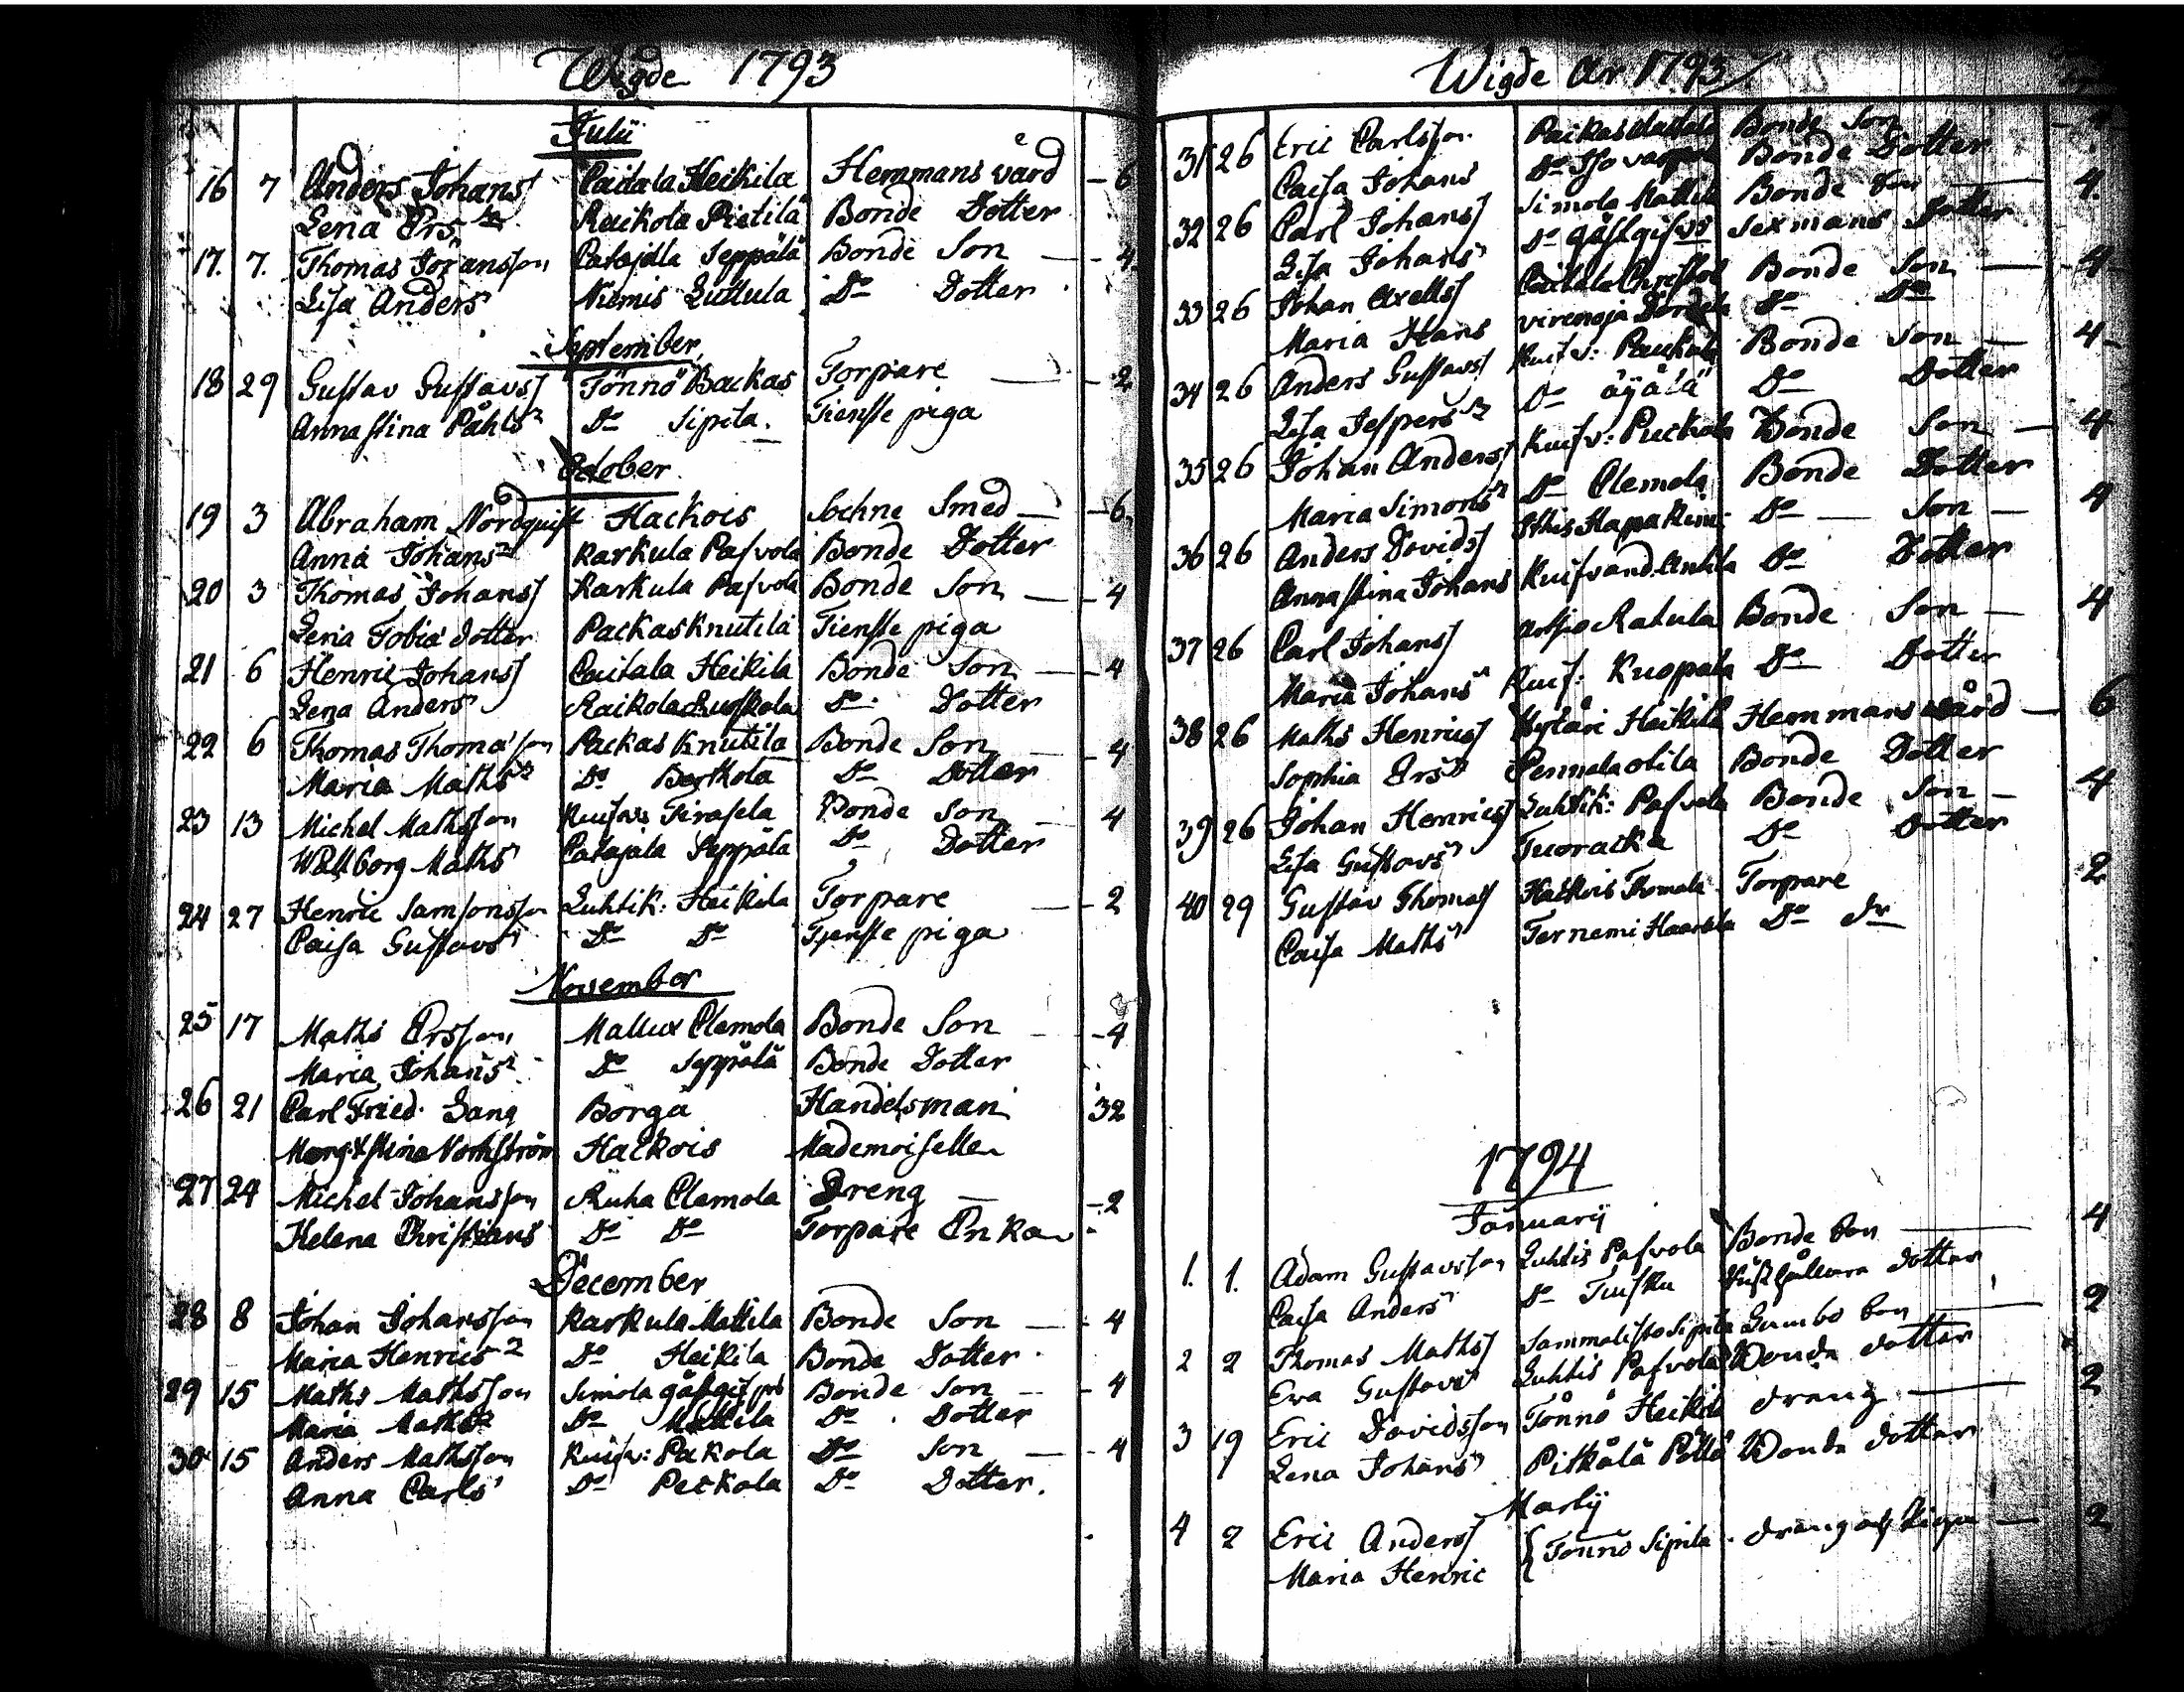 Wigde 1793
Julii
16 7 Anders Johanss Caitala Heikila Hemmans värd - 6
Lena Ers Raikola Pietilä Bonde Dotter
17. 7. Thomas Göransson Catajala Seppälä Bonde Son - 4
Lisa Anders Niemis Luttula Do Dotter
September
18 29 Gustav Gustavss Tönnö Backas Torpare - 2
Annastina Påhls Do Sipila. Tienste piga
October
19 3 Abraham Nordquist Hackois Sochne Smed - 6
Anna Johans Karkula Pasvola Bonde Dotter
20 3 Thomas Johanss Karkula Pasvola Bonde Son - 4
Lena Tobiä dotter Packas Knutila Tienste piga
21 6 Henric Johanss Caitala Heikila Bonde Son - 4
Lena Anders Raikola Do. Dotter
22 6 Thomas Thomasson Packas Knutila Bonde Son - 4
Maria Maths Do Berthola Do Dotter
23 13 Michel Mathsson Bonde Son 4
Wallborg Maths Catajala Seppälä Do Dotter
24 27 Henric Samsonsson Luhtik: Heikila Torpare - 2
Caisa Gustavs Do Do Tjenste piga
November
25 17 Maths Ersson Mallux Clemola Bonde Son - 4
Maria Johans Do Seppälä Bonde Dotter
26 21 Carl Fried. Lang Borgå Handelsman 32
Hackois Mademoiselle
27 24 Michel Johansson Ruha Clemola Dreng - 2
Helena Christians Do Do Torpare Enka
December
28 8 Johan Johansson Karkula Mattila Bonde Son - 4
Maria Henrics Do Heikila Bonde Dotter
29 15 Maths Mathsson Simola Bonde Son - 4
Maria Maths Do Mattila Do Dotter
30 15 Anders Mathsson Kuisv: Pakola Do Son - 4
Anna Carls Do Peckola Do Dotter.
Wigde År 1793
31 26 Eric Carlsson Bonde Son
Caisa Johans Do Bonde Dotter
32 26 Carl Johanss Simola Mattila Bonde Son 4
Lisa Johans Do Sexmans Dotter
33 26 Johan Axellss Caitala Bonde Son - 4
Maria Hans virenoja Do Do
34 26 Anders Gustavss Kuisv: Bonde Son - 4
Lisa Jespers Do äyälä Do Dotter
35 26 Johan Anderss Kuisv: Puckola Bonde Son - 4
Maria Simons Do Clemola Bonde Dotter
36 26 Anders Davidss Do Son - 4
Annastina Johans Kuisvand. Antila Do Dotter
37 26 Carl Johanss Ratula Bonde Son - 4
Maria Johans Kuis: Kuopala Do Dotter
38 26 Maths Henricss Hyläri Heikilä Hemmans värd - 6
Sophia Ers Pennala olila Bonde Dotter
39 26 Johan Henricss Luhtik: Pasvola Bonde Son - 4
Lisa Gustavs Tuoracka Do Dotter
40 29 Gustav Thomass Hackois Thomola Torpare 2
Caisa Maths Ternemi Do Dr
1794
Januarij
1. 1. Adam Gustavsson Luhtis Pasvola Bonde Son 4
Caisa Anders Do dotter
2 2 Thomas Mathss Sammalisto Sipila Son 2
Eva Gustavs Luhtis Pasvola Bonde dotter
3 19 Eric Davidsson Tönnö Heikila dreng 2
Lena Johans Pitkälä Bonde dotter
Martij
4 2 Eric Anderss { Tönnö Sipila. dreng och Piga - 2
Maria Henric